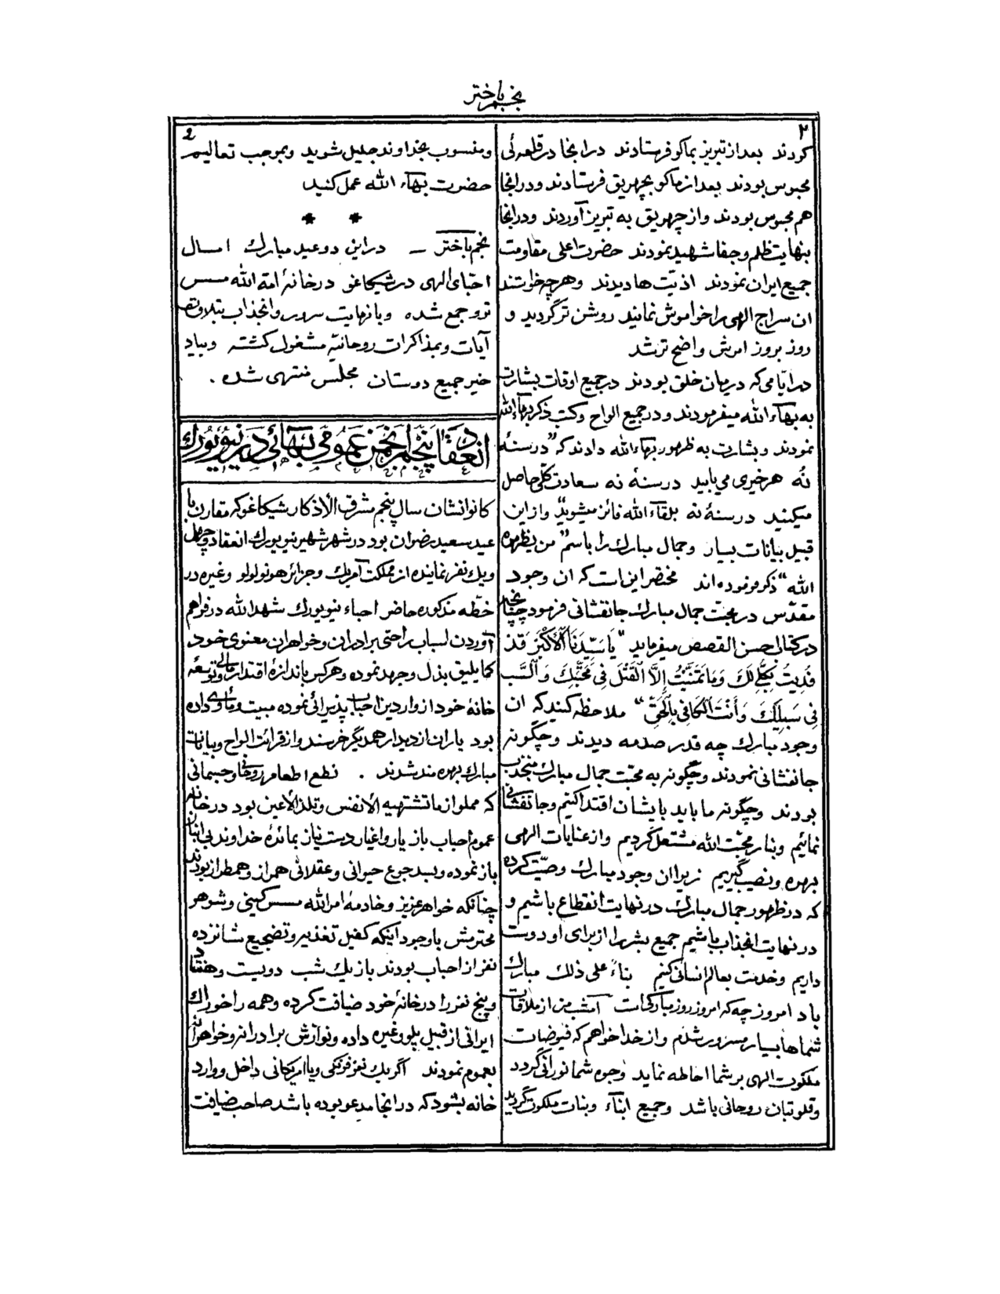 نجم باختر
۲
کردند بعد از تبریز بماکو فرستادند در انجا در قلعه‌ئی
محبوس بودند بعد از ماکو بچهریق فرستادند و در انجا
هم محبوس بودند و از چهریق به تبریز آوردند و در انجا
بنهایت ظلم و جفا شهید نمودند حضرت اعلی مقاومت
جمیع ایران نمودند اذیّت ها دیدند و هر چه خواستند
ان سراج الهی را خواموش نمانید روشن تر گردید و
روز بروز امرش واضح تر شد
در ایّامی که در میان خلق بودند در جمیع اوقات بشارت
به بهآء الله میفرمودند و در جمیع الواح و کتب ذکر بهآء الله
نمودند و بشارت به ظهور بهاء الله دادند که "در سنهٔ
نه هر خیری می یابید در سنهٔ نه سعادت کلّی حاصل
میکنید در سنهٔ نه بلقآء الله فائز میشوید" و از این
قبیل بیانات بسیار و جمال مبارک را باسم "من یظهره
الله" ذکر فرموده اند مختصر این است که ان وجود
مقدّس در محبّت جمال مبارک جانفشانی فرمود چنانچه
در کتاب احسن القصص میفرماید "یا سَیِّدَنَا الْاَکْبَرُ قَدْ
فَدِیتُ بِکُلِّی لَکَ وَمَا تَمَنَّیْتُ اِلَّا الْقَتْلَ فِی مَحَبَّتِکَ وَالسَّبَّ
فِی سَبِیلِکَ وَأَنْتَ الْکَافِی بِالْحَقِّ" ملاحظه کنید که ان
وجود مبارک چه قدر صدمه دیدند و چگونه
جانفشانی نمودند و چگونه به محبّت جمال مبارک منجذب
بودند و چگونه ما باید بایشان اقتدا کنیم و جانفشانی
نمائیم و بنار محبّت الله مشتعل گردیم و از عنایات الهی
بهره و نصیب گیریم زیرا ان وجود مبارک وصیّت کرده
که در ظهور جمال مبارک در نهایت انقطاع باشیم و
در نهایت انجذاب باشیم جمیع بشر را از برای او دوست
داریم و خدمت بعالم انسانی کنیم بناءً علی ذلک مبارک
باد امروز چه که امروز روز مبارکیست امشب من از ملاقات
شماها بسیار مسرور شدم و از خدا خواهم که فیوضات
ملکوت الهی بر شما احاطه نماید وجوه شما نورانی گردد
و قلوتبان روحانی باشد و جمیع ابنآء و بنات ملکوت گردید
و منسوب بخداوند جلیل شوید و بموجب تعالیم
حضرت بهاء الله عمل کنید
* *
نجم باختر ـ در این دو عید مبارک امسال
احبّای الهی در شیکاغو در خانهٔ امة الله مسس
ترو جمع شده و با نهایت سرور و انجذاب بتلاوت
آیات و بمذاکرات روحانیّه مشغول گشته و بیاد
خیر جمیع دوستان مجلس منتهی شده .
انعقاد پنجم انجمن عمومی بهائی در نیویورک
کانوانشان سال پنجم مشرق الاذکار شیکاغو که مقارن با
عید سعید رضوان بود در شهر شهیر نیویورک انعقاد و چهل
و یک نفر نماینده از مملکت آمریک و جزائر هونولولو و غیره در
خطّه مذکوره حاضر احباء نیویورک شهد الله در فراهم
آوردن اسباب راحتی برادران و خواهران معنوی خود
کما یلیق بذل و جهد نموده و هر کس باندازهٔ اقتدار مالی و توسعهٔ
خانهٔ خود از واردین احباب پذیرائی نموده مبیت و ماوی داده
بود یاران از دیدار همدیگر خرسند و از قرائت الواح و بیانات
مبارک بهره مند شدند . نطع اطعام روحانی و جسمانی
که مملو از ما تشتهیه الانفس و تلذ الاعین بود در خانه
عموم احباب باز یار و اغیار دست نیاز بمائدهٔ خداوند بی انباز
باز نموده و بسد جوع حیوانی و عقلانی همراز و همطراز بودند
چنانکه خواهر عزیز و خادمهٔ امر الله مسس کینی و شوهر
محترمش با وجود آینکه کفیل تغذیر و تضجیع شانزده
نفر از احباب بودند باز یک شب دویست و هفتاد
و پنج نفر را در خانهٔ خود ضیافت کرده و همه را خوراک
ایرانی از قبیل پلو و غیره داده و نوازش برادرانه و خواهرانه
بعموم نمودند اگر یک نفر فرنگی و یا امریکانی داخل و وارد
خانه بشود که در انجا مدعو بوده باشد صاحب ضیافت